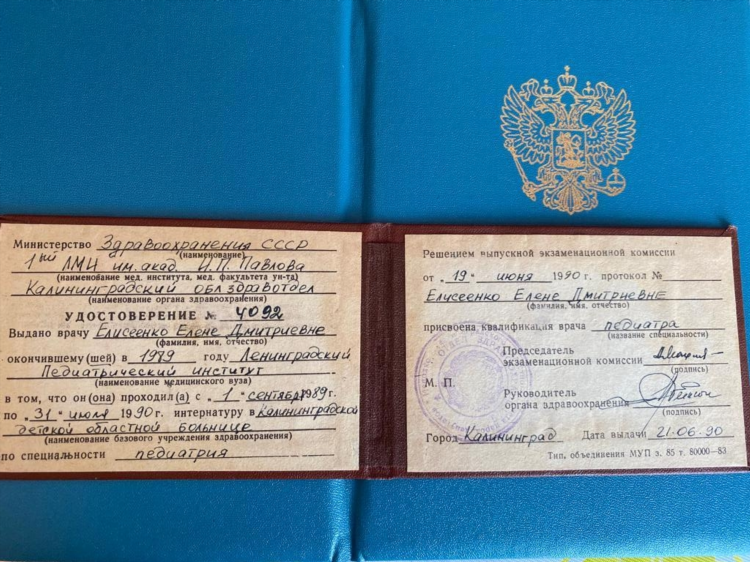 Министерство Здравоохранения СССР
(наименование)
1кий ЛМИ им. акад. И.П. Павлова
(наименование мед. института, мед. факультета ун-та)
Калининградский облздравотдел
(наименование органа здравоохранения)
УДОСТОВЕРЕНИЕ № 4092
Выдано врачу Елисеенко Елене Дмитриевне
(фамилия, имя, отчество)
окончившему (шей) в 1989 году Ленинградский
Педиатрический институт
(наименование медицинского вуза)
в том, что он(она) проходил(а) с „1" сентября 1989г.
по „31" июля 1990 г. интернатуру в Калининградской
детской областной больнице
(наименование базового учреждения здравоохранения)
по специальности педиатрия
Решением выпускной экзаменационной комиссии
от „19" июня 1990 г. протокол №
Елисеенко Елене Дмитриевне
(фамилия, имя, отчество)
присвоена квалификация врача педиатра
(название специальности)
Председатель
экзаменационной комиссии
(подпись)
М. П.
Руководитель
органа здравоохранения
(подпись)
Город Калининград Дата выдачи 21.06.90
Тип. объединения МУП з. 85 т. 80000—83